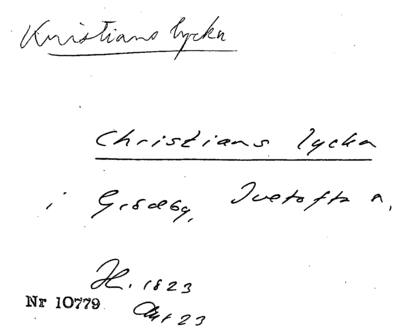 Kristians lycka
Christians lycka
i Grödby, Ivetofta s.
H. 1823
Nr 10779
Akt 23